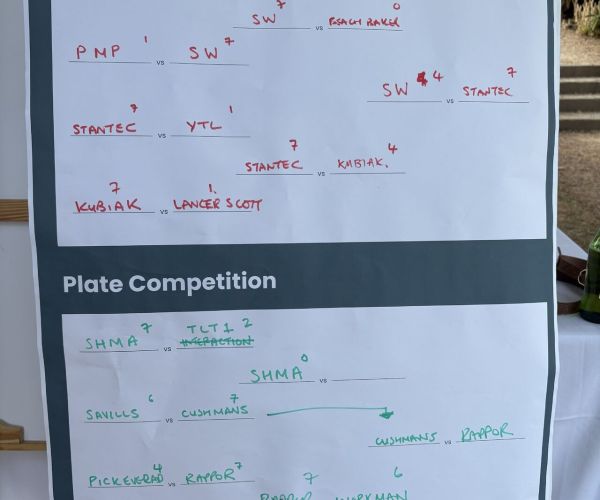 SW 7 vs BEACH BAKER 0
PMP 1 vs SW 7
SW 4 vs STANTEC 7
STANTEC 7 vs YTL 1
STANTEC 7 vs KUBIAK. 4
KUBIAK 7 vs LANCER SCOTT 1.
Plate Competition
SHMA 7 vs TLT1 2
INTERACTION
SHMA 0 vs
SAVILLS 6 vs CUSHMANS 7
CUSHMANS vs RAPPOR
PICKEVERAD 4 vs RAPPOR 7
RAPPOR 7 WORKMAN 6